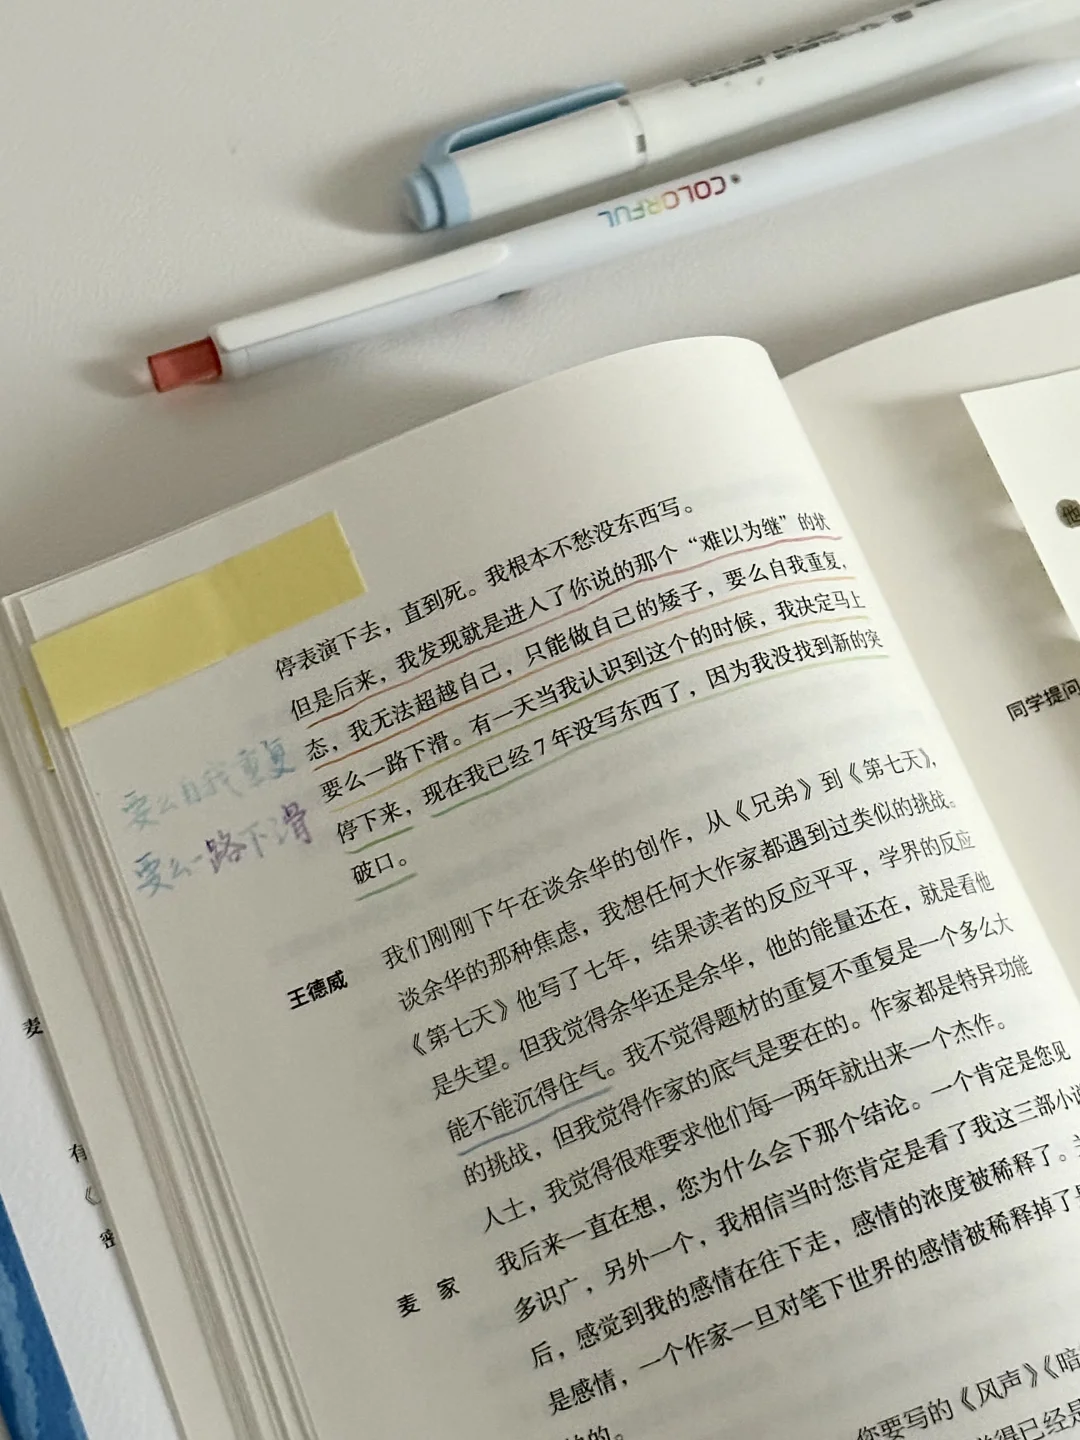 COLORFUL
停表演下去，直到死。我根本不愁没东西写。
但是后来，我发现就是进入了你说的那个“难以为继”的状
态，我无法超越自己，只能做自己的矮子，要么自我重复，
要么一路下滑。有一天当我认识到这个的时候，我决定马上
停下来，现在我已经7年没写东西了，因为我没找到新的突
破口。
要么自我重复
要么一路下滑
王德威
我们刚刚下午在谈余华的创作，从《兄弟》到《第七天》，
谈余华的那种焦虑，我想任何大作家都遇到过类似的挑战。
《第七天》他写了七年，结果读者的反应平平，学界的反应
是失望。但我觉得余华还是余华，他的能量还在，就是看他
能不能沉得住气。我不觉得题材的重复不重复是一个多么大
的挑战，但我觉得作家的底气是要在的。作家都是特异功能
人士，我觉得很难要求他们每一两年就出来一个杰作。
麦 家
我后来一直在想，您为什么会下那个结论。一个肯定是您见
多识广，另外一个，我相信当时您肯定是看了我这三部小说
后，感觉到我的感情在往下走，感情的浓度被稀释了。
是感情，一个作家一旦对笔下世界的感情被稀释掉了
的。
您要写的《风声》《暗
得已经是
他
同学提问
麦
有
《